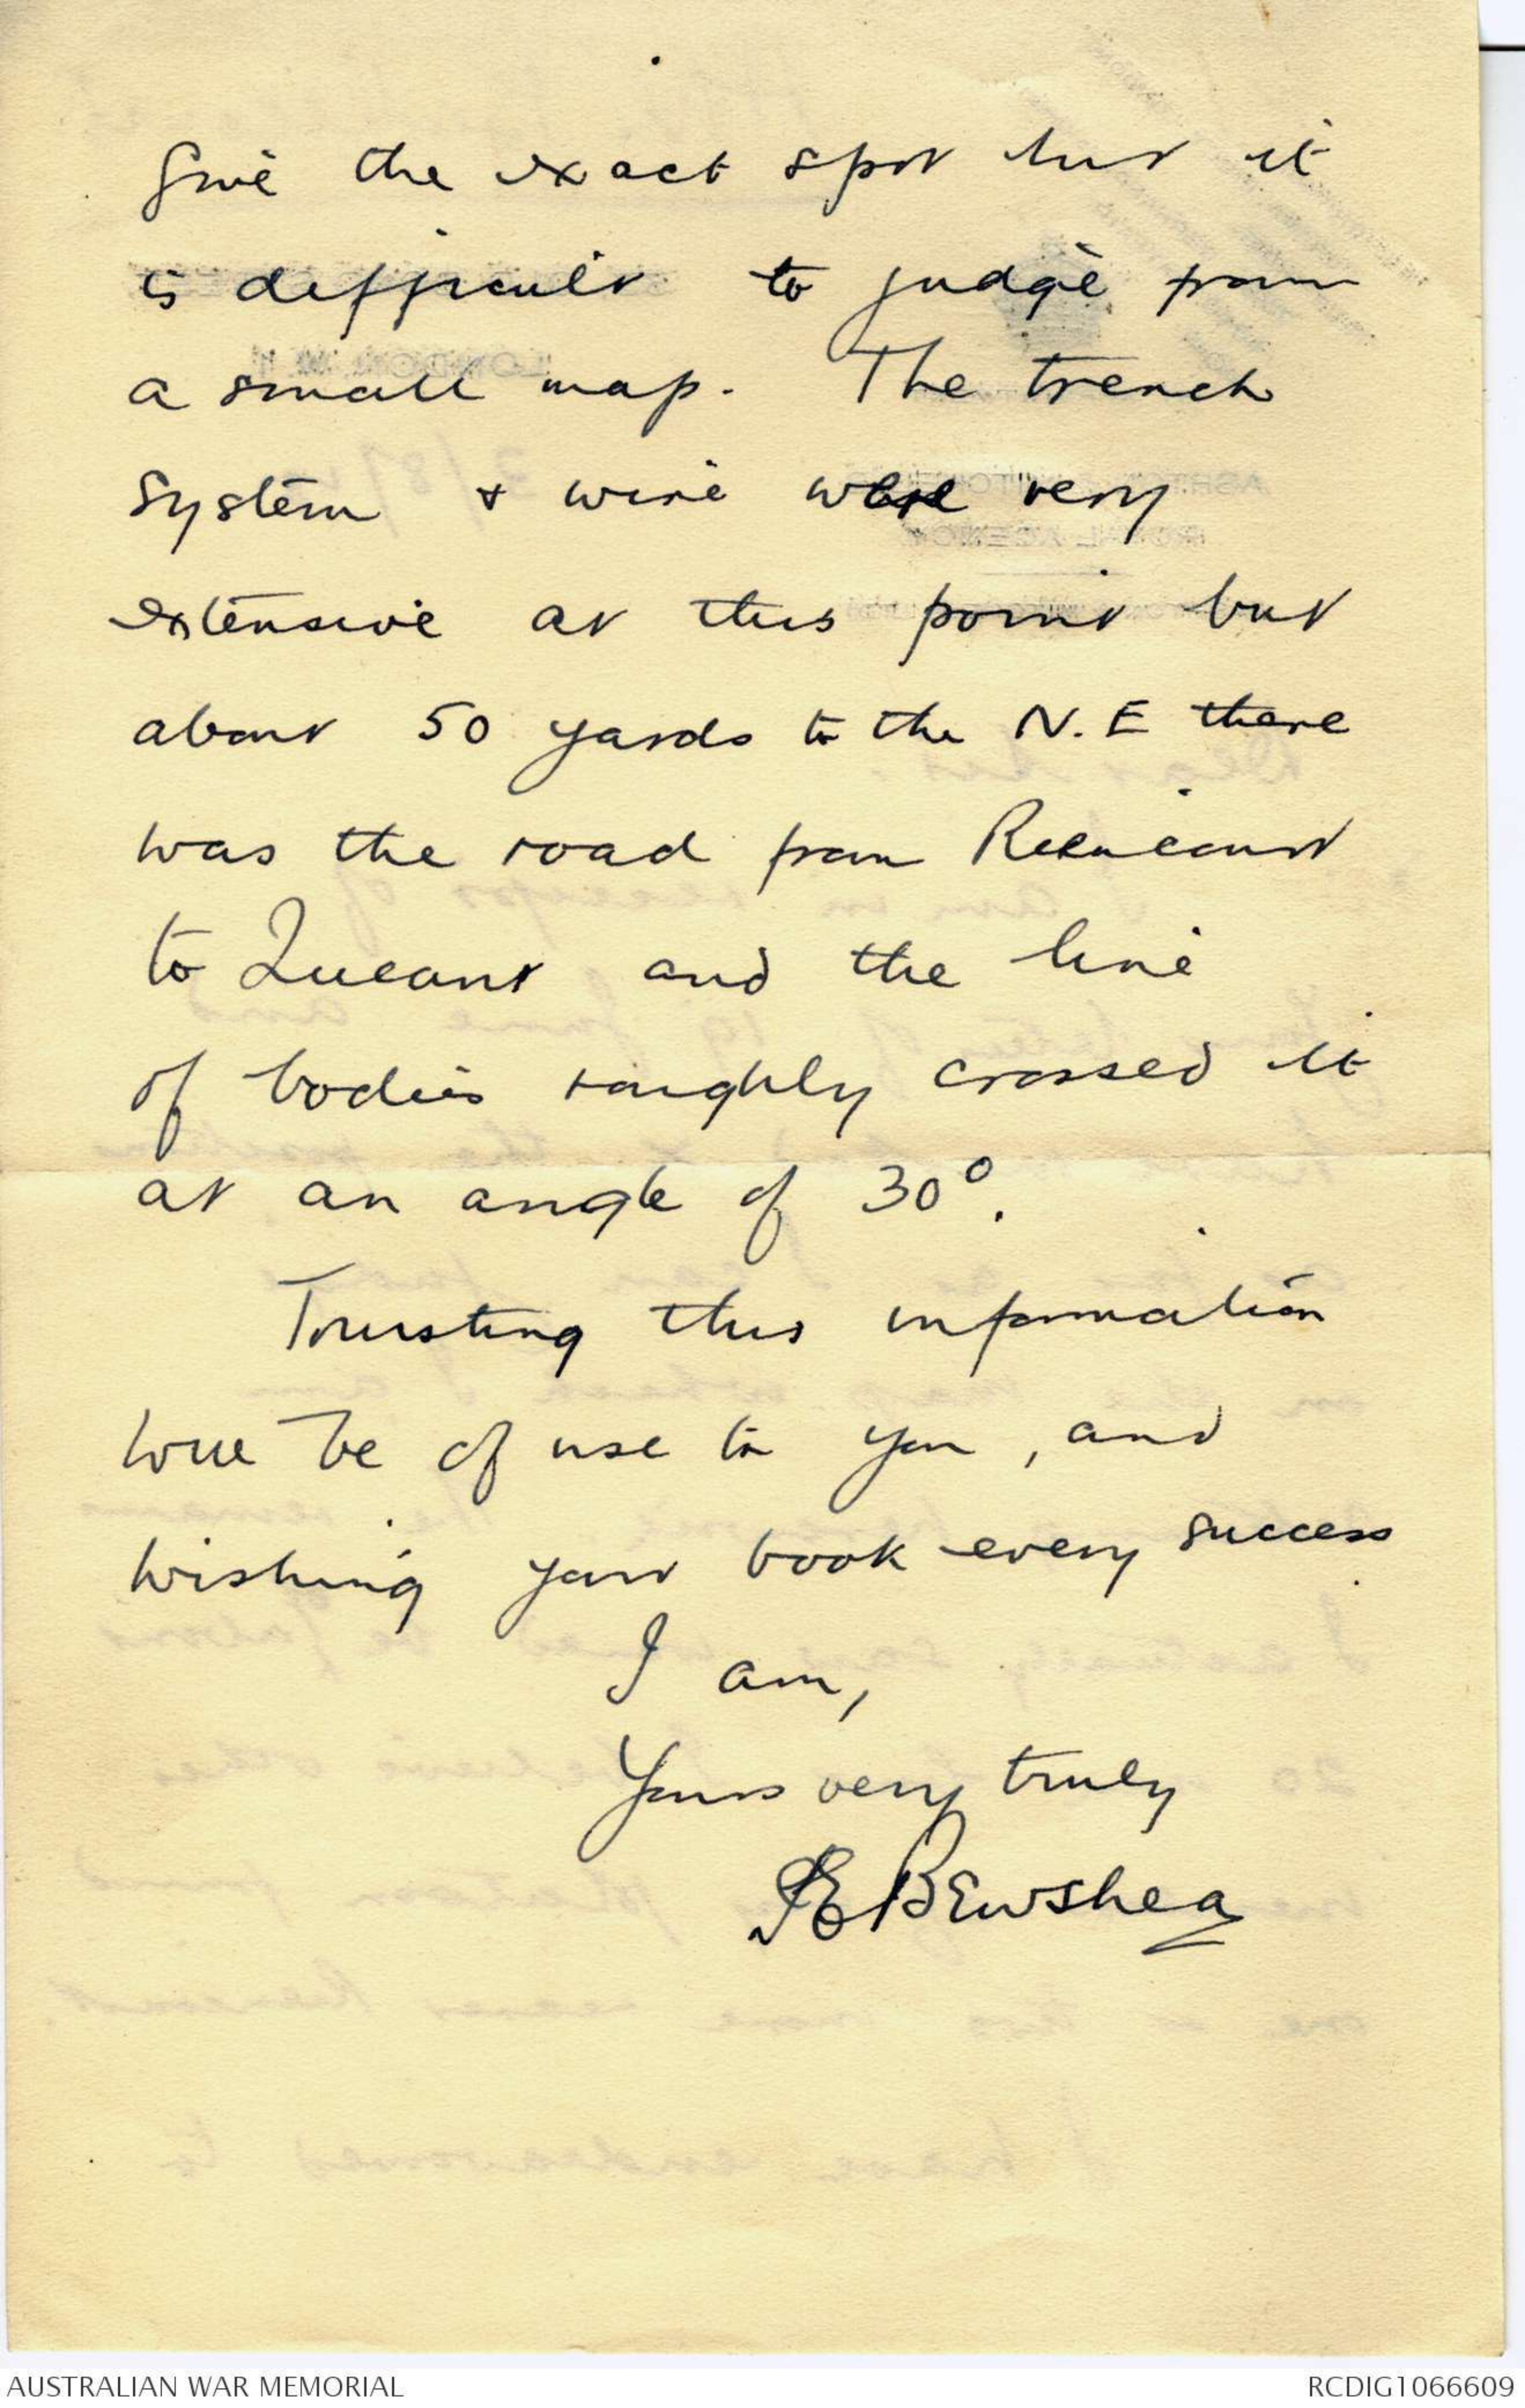 give the exact spot but it
is difficult to judge from
a small map. The trench
system & wire were very
extensive at this point but
about 50 yards to the N.E there
was the road from Riencourt
to Queant and the line
of bodies roughly crossed it
at an angle of 30°.
Trusting this information
will be of use to you, and
wishing your book every success
I am,
Yours very truly
Bewshea
AUSTRALIAN WAR MEMORIAL
RCDIG1066609